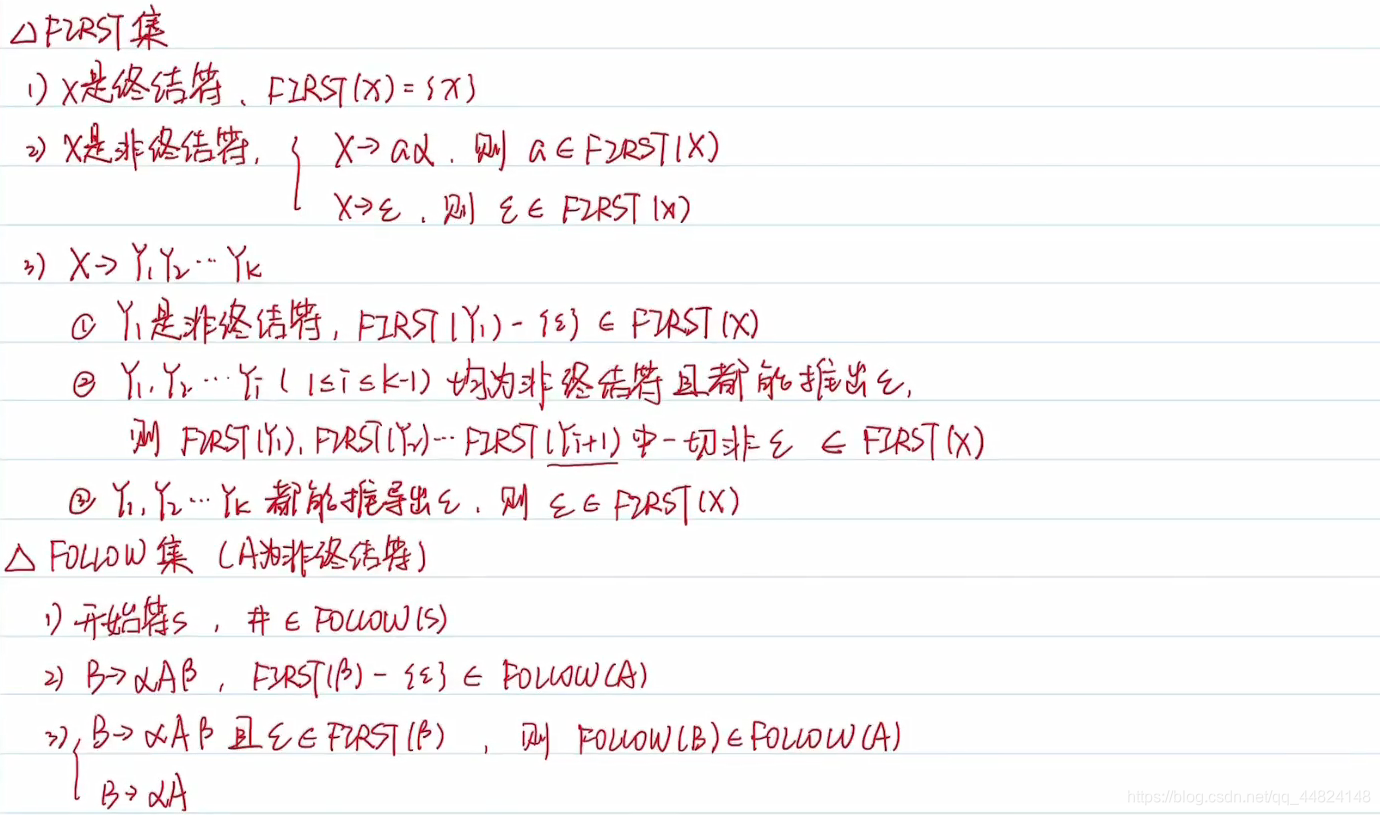 △ FIRST集
1) X是终结符、FIRST(X) = {X}
2) X是非终结符, { X→aα. 则 a ∈ FIRST(X)
X→ε. 则 ε ∈ FIRST(X)
3) X→Y₁Y₂…Yₖ
① Y₁是非终结符, FIRST(Y₁) - {ε} ∈ FIRST(X)
② Y₁,Y₂…Yᵢ (1≤i≤k-1) 均为非终结符且都能推出ε,
则 FIRST(Y₁), FIRST(Y₂)…FIRST(Yᵢ₊₁) 中一切非ε ∈ FIRST(X)
③ Y₁,Y₂…Yₖ 都能推导出ε. 则 ε ∈ FIRST(X)
△ FOLLOW集 (A为非终结符)
1) 开始符S, # ∈ FOLLOW(S)
2) B→αAβ, FIRST(β) - {ε} ∈ FOLLOW(A)
3) { B→αAβ 且 ε ∈ FIRST(β), 则 FOLLOW(B) ∈ FOLLOW(A)
B→αA
https://blog.csdn.net/qq_44824148